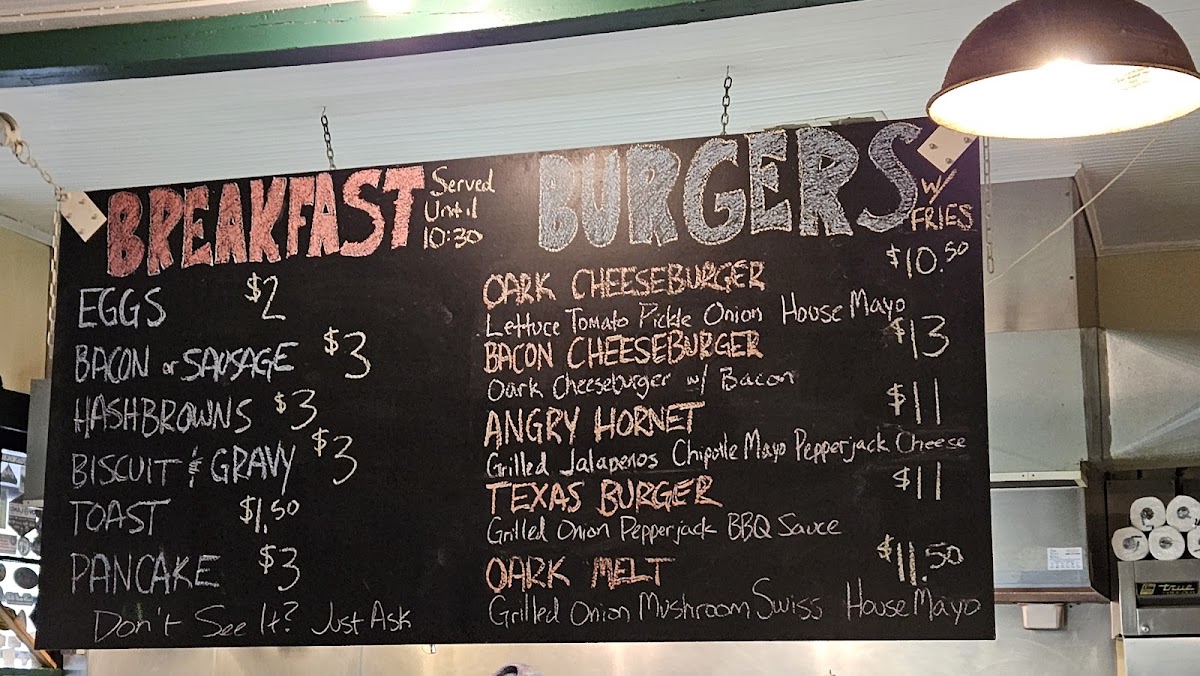 BREAKFAST
Served
Until
10:30
EGGS $2
BACON or SAUSAGE $3
HASHBROWNS $3
BISCUIT & GRAVY $3
TOAST $1.50
PANCAKE $3
Don't See It? Just Ask
BURGERS
w/
FRIES
OARK CHEESEBURGER $10.50
Lettuce Tomato Pickle Onion House Mayo
BACON CHEESEBURGER $13
Oark Cheeseburger w/ Bacon
ANGRY HORNET $11
Grilled Jalapenos Chipotle Mayo Pepperjack Cheese
TEXAS BURGER $11
Grilled Onion Pepperjack BBQ Sauce
OARK MELT $11.50
Grilled Onion Mushroom Swiss House Mayo
true